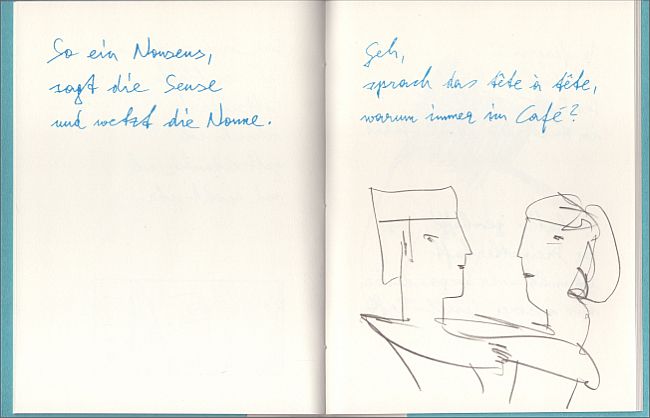 So ein Nonsens,
sagt die Sense
und wetzt die Nonne.
Geh,
sprach das tête à tête,
warum immer im Café?